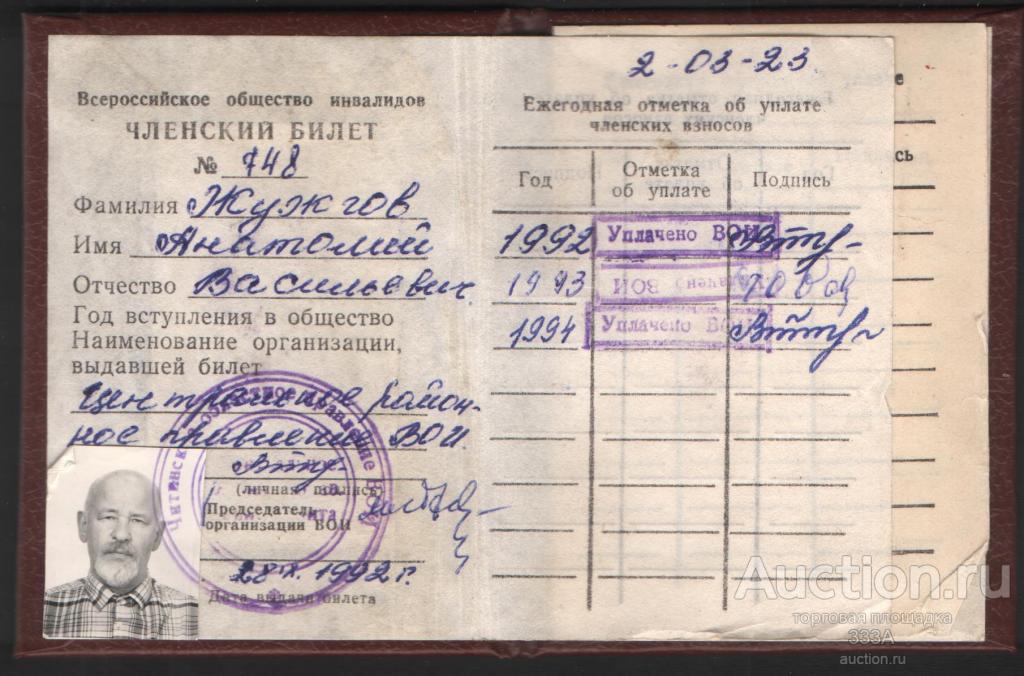 Всероссийское общество инвалидов
ЧЛЕНСКИЙ БИЛЕТ
№ 748
Фамилия Жужгов
Имя Анатолий
Отчество Васильевич
Год вступления в общество
Наименование организации,
выдавшей билет
Центральное район-
ное правление ВОИ
(личная подпись)
Председатель
организации ВОИ
28 х. 1992 г.
Дата выдачи билета
Читинск правление ВОИ
2-03-23
Ежегодная отметка об уплате
членских взносов
Год
Отметка
об уплате
Подпись
1992 Уплачено ВОИ
1993 Уплачено ВОИ
1994 Уплачено ВОИ
е
сь
Auction.ru
торговая площадка
333А
auction.ru